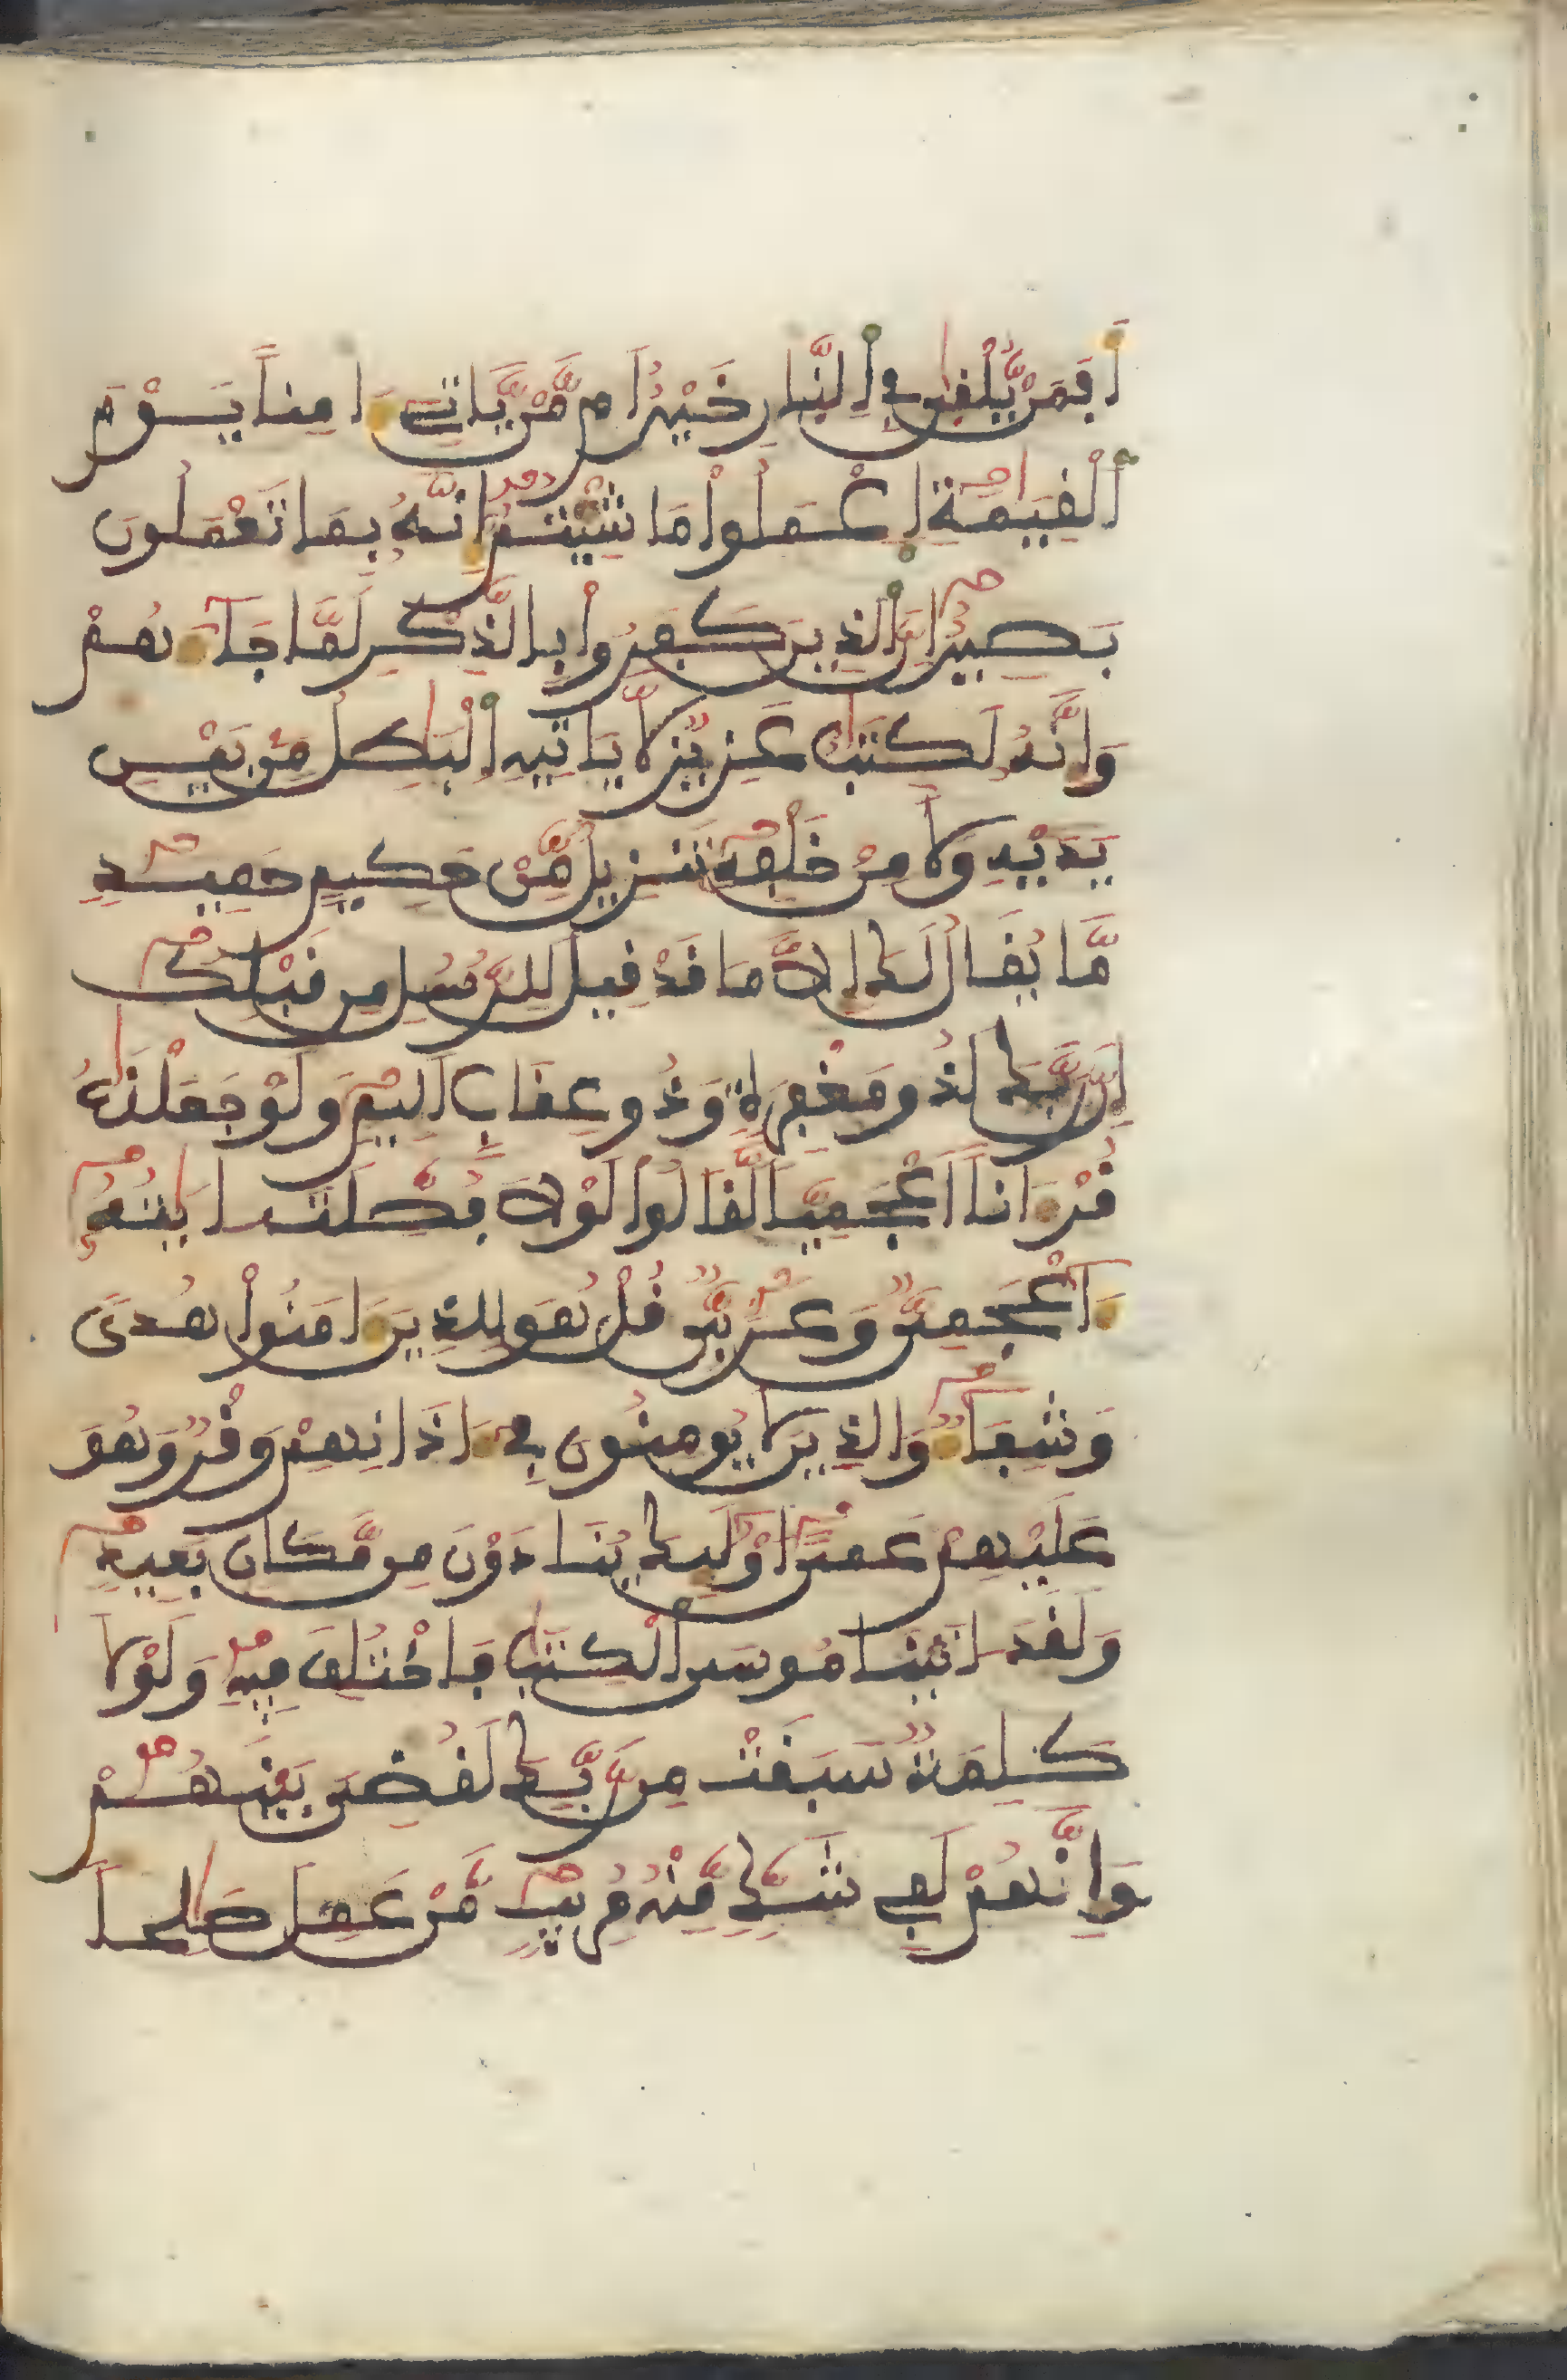 اَفَمَنْ يُّلْفٜىٰ فِے اِ۬لنّ۪ارِ خَيْرٌ اَم مَّنْ يَّاتِےٓ ءَامِناٗ يَوْمَ
اَ۬لْقِيَٰمَةِ اِ۪عْمَلُواْ مَا شِئْتُمُۥٓ إِنَّهُۥ بِمَا تَعْمَلُونَ
بَصِيرٌ اِنَّ اَ۬لذِينَ كَفَرُواْ بِالذِّكْرِ لَمَّا جَآءَهُمْ
وَإِنَّهُۥ لَكِتَٰبٌ عَزِيزٌ لَّا يَاتِيهِ اِ۬لْبَٰطِلُ مِنۢ بَيْنِ
يَدَيْهِ وَلَا مِنْ خَلْفِهِۦ تَنزِيلٌ مِّنْ حَكِيمٍ حَمِيدٍ
مَّا يُقَالُ لَكَ إِلَّا مَا قَدْ قِيلَ لِلرُّسُلِ مِن قَبْلِكَ
إِنَّ رَبَّكَ لَذُو مَغْفِرَةٍ وَذُو عِقَابٍ اَلِيمٍ وَلَوْ جَعَلْنَٰهُ
قُرْءَاناً اَعْجَمِيّاٗ لَّقَالُواْ لَوْلَا فُصِّلَتَ اٰيَٰتُهُۥٓ
ءَاَعْجَمِيٌّ وَعَرَبِيٌّ قُلْ هُوَ لِلذِينَ ءَامَنُواْ هُديٗ
وَشِفَآءٌ وَالذِينَ لَا يُومِنُونَ فِےٓ ءَاذَانِهِمْ وَقْرٌ وَهُوَ
عَلَيْهِمْ عَميً اُوْلَٰٓئِكَ يُنَادَوْنَ مِن مَّكَانِۢ بَعِيدٍ
وَلَقَدَ اٰتَيْنَا مُوسَى اَ۬لْكِتَٰبَ فَاخْتُلِفَ فِيهِ وَلَوْلَا
كَلِمَةٌ سَبَقَتْ مِن رَّبِّكَ لَقُضِيَ بَيْنَهُمْ
وَإِنَّهُمْ لَفِے شَكٍّ مِّنْهُ مُرِيبٍ مَّنْ عَمِلَ صَٰلِحاٗ